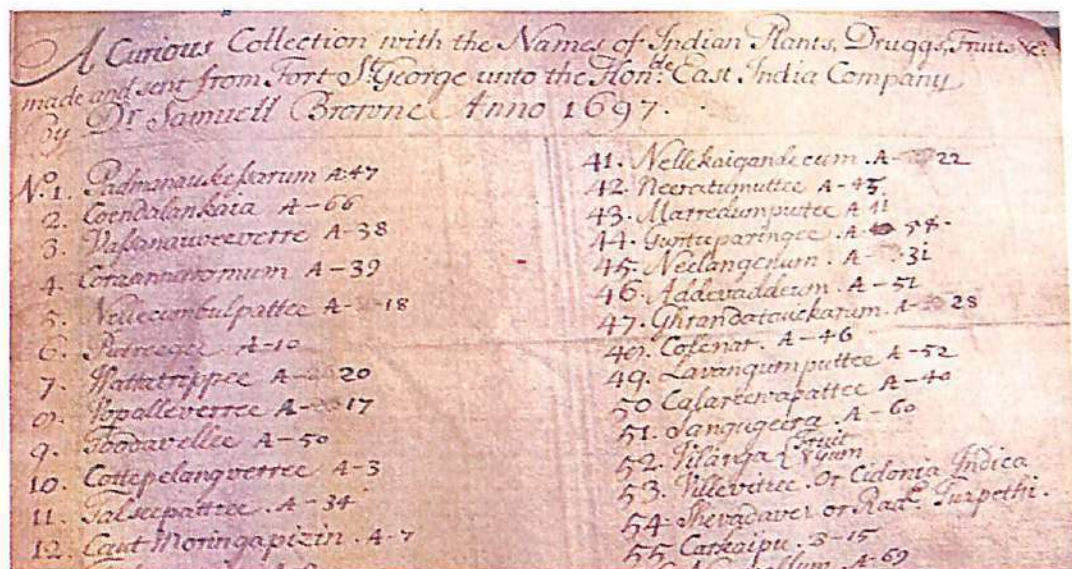 A Curious Collection with the Names of Indian Plants, Druggs, Fruits &c.
made and sent from Fort St. George unto the Honble East India Company
by Dr Samuell Browne Anno 1697.
No. 1. Padmanaukessarum A-47
2. Coendalankaia A-66
3. Vassanauweeverre A-38
4. A-39
5. A-18
6. A-10
7. Wattatrippee A-20
8. Popalleverree A-17
9. Toodavellee A-50
10. Cottepelangverree A-3
11. Talseepattee A-34
12. Caut Moringapizin. A-7
41. A-22
42. Neeratumuttee A-45
43. Marredumputtee A
44. A-58.
45. Neelangenum. A-31
46. Addevaddeum. A-51
47. A-28
48. Cosenar. A-46
49. Lavangumputtee A-52
50 A-40
51. Sangugeera. A-60
52. Vilanga Fruit
53. Villevitree. Or Cidonia Indica
54. or Turpethi.
55 Carkaipu. B-15
A-69